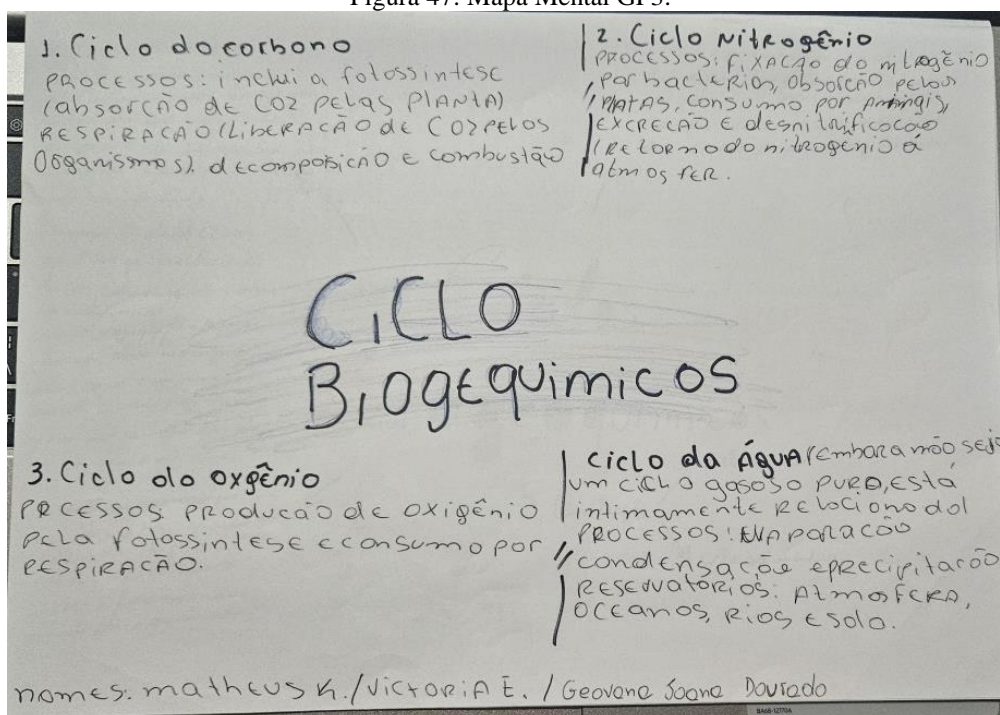 Figura 47: Mapa Mental GP3.
1. Ciclo do corbono
PROCESSOS: inclui a fotossintese
(absorcão de CO2 pelas PlANTA)
RESPIRACÃO (LibeRACÃO de CO2 PELOS
Organismos). decomposicão e combustão
2. Ciclo NitRogênio
PROCESSOS: FiXACÃO do nitrogênio
por bacterias, absorcão pelas
PlATAS, consumo por
EXCRECÃO E desnitrificocão
(RetoRno do nitrogenio a
atmosfER.
CiCLO
BiOgequimicos
3. Ciclo do oxgênio
PRCESSOS PRoducão de oxigênio
Pela fotossintese e consumo por
RESPiRACÃO.
ciclo da ÁgUA (embara não seja
um ciclo gasoso PURO, está
intimamente Relocionodo)
PROCESSOS: EVAPORACÃO
condensação e pRecipitacão
RESERVATÓRIOS: AtmosfeRA,
OCEANOS, Rios E Solo.
nomes: matheus K. / VictoRiA E. / Geovana Joana Dourado
BA68-12770A